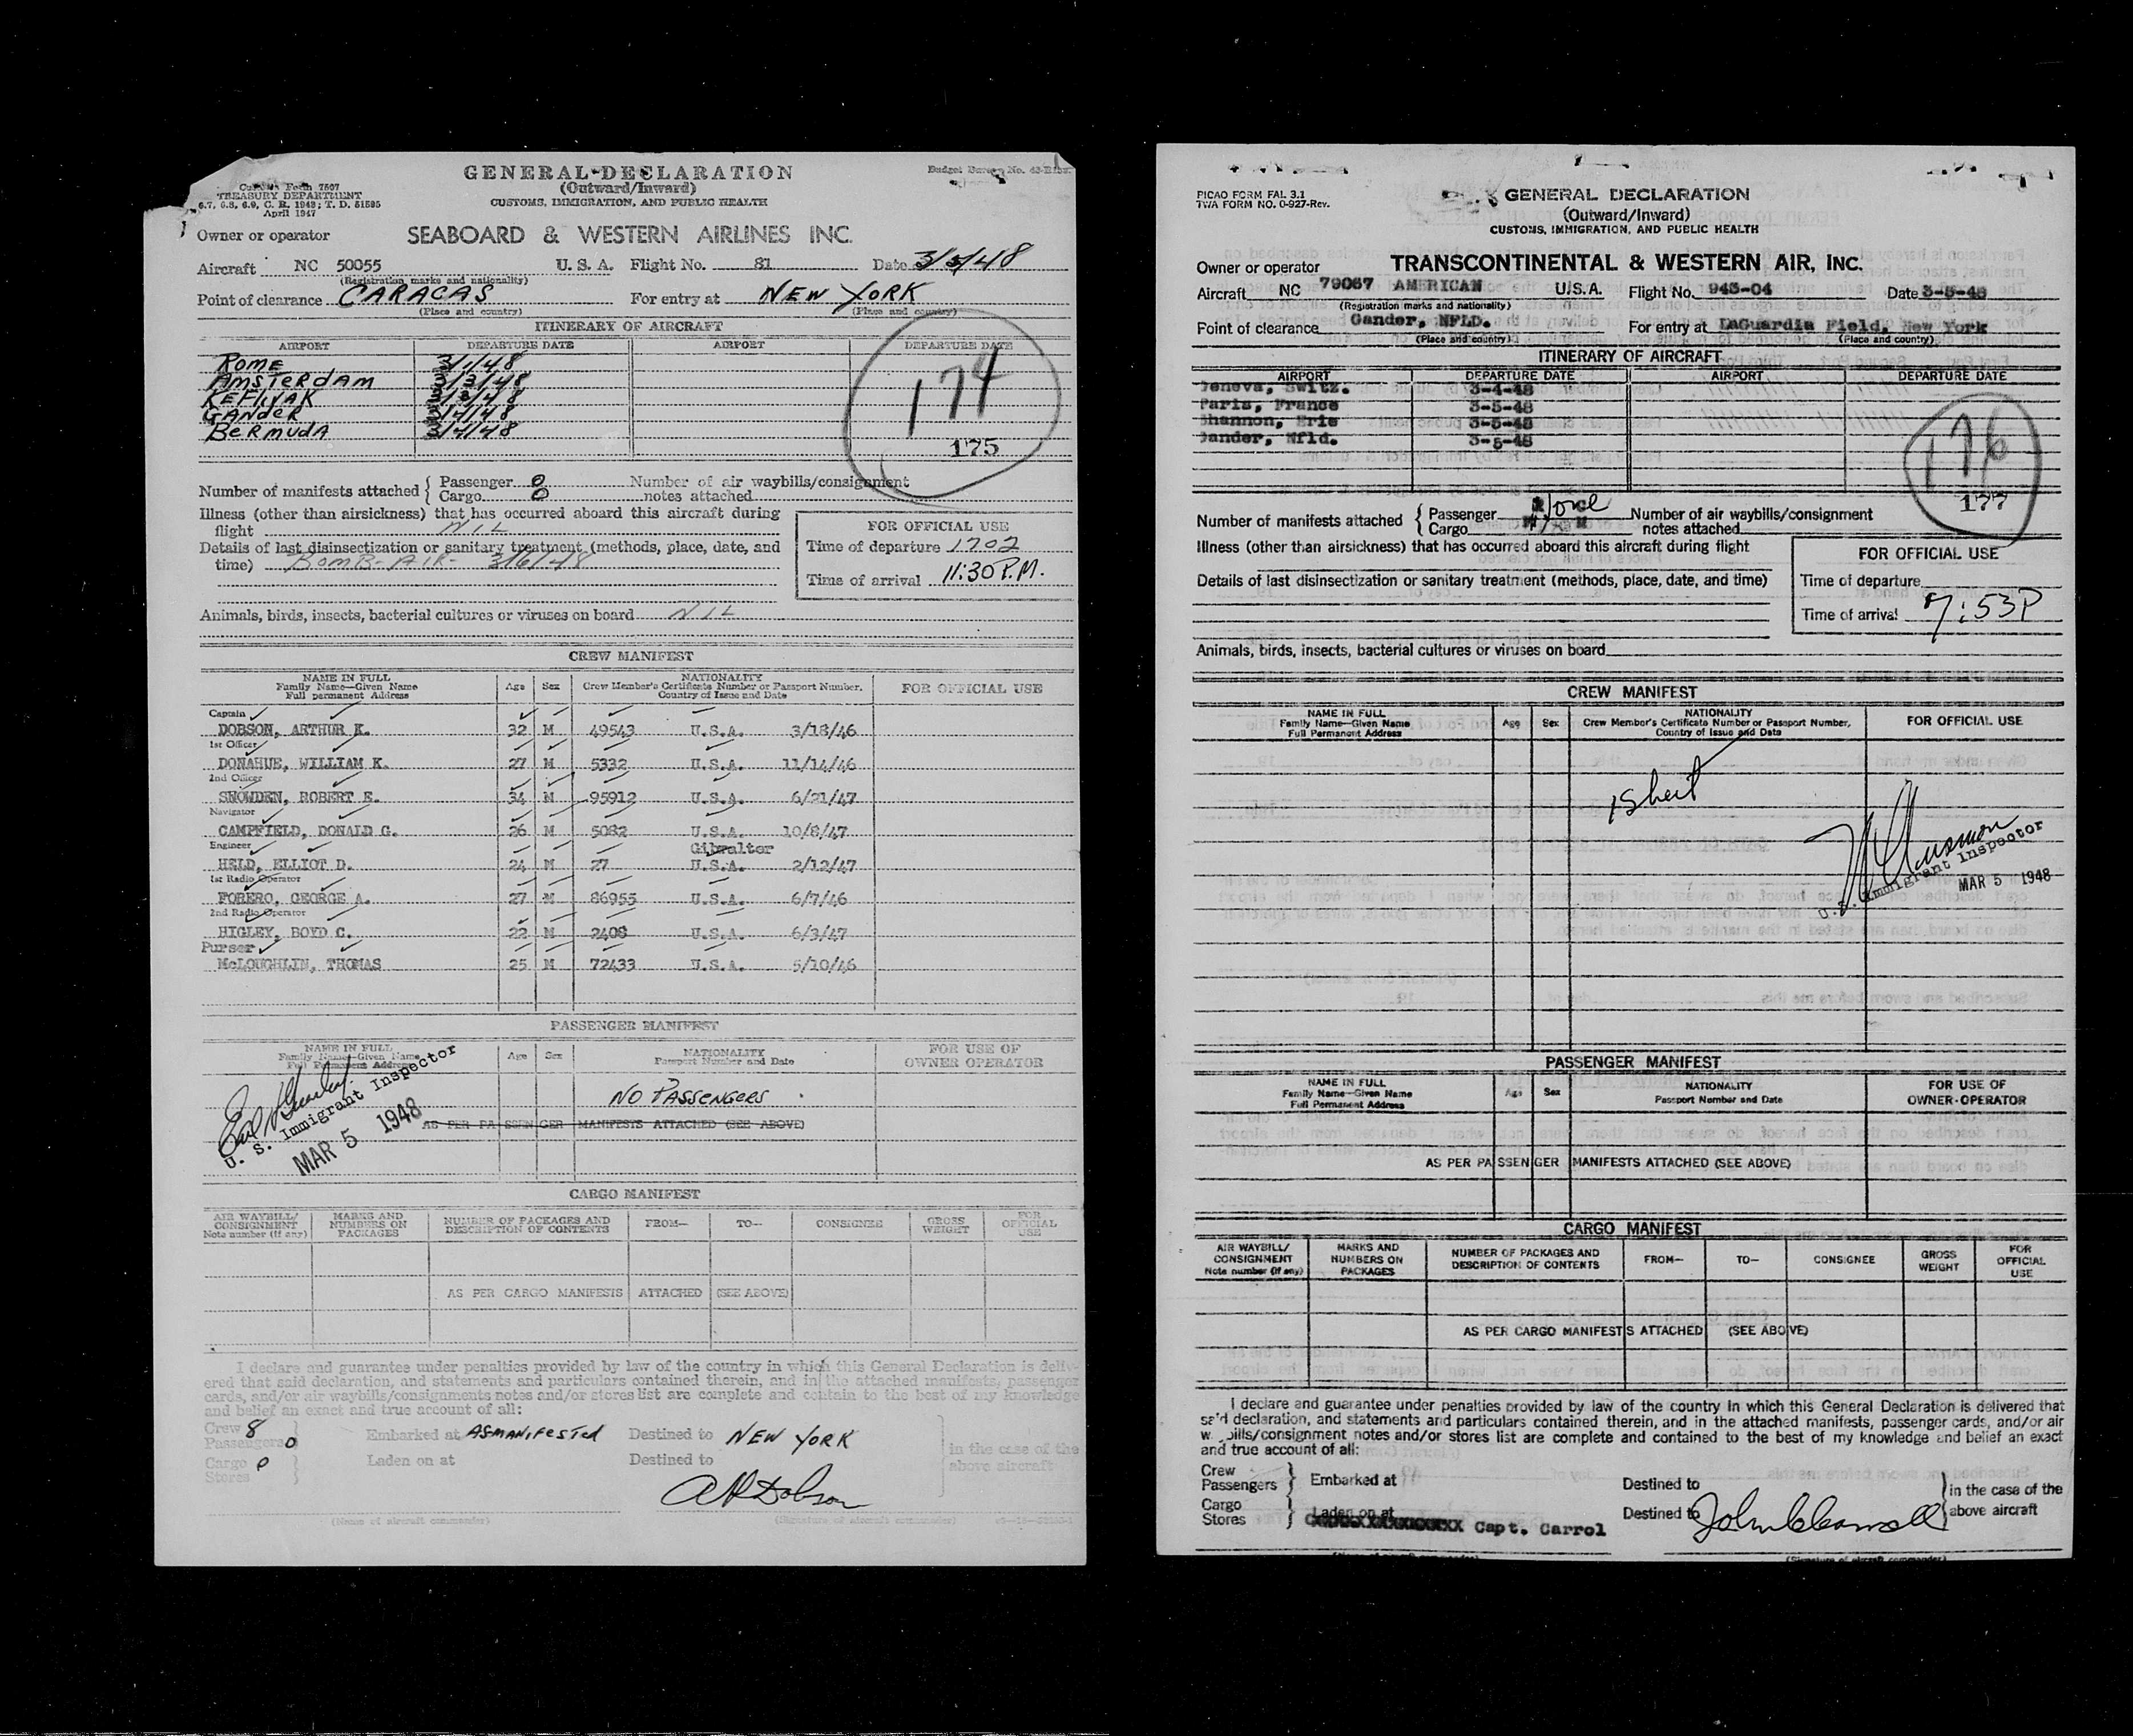 GENERAL DECLARATION
(Outward/Inward)
CUSTOMS, IMMIGRATION, AND PUBLIC HEALTH
Customs Form 7507
TREASURY DEPARTMENT
6.7, 6.8, 6.9, C. R. 1943; T. D. 51595
April 1947
Budget Bureau No.
Owner or operator SEABOARD & WESTERN AIRLINES INC.
Aircraft NC 50055 U. S. A. Flight No. 81 Date 3/5/48
(Registration marks and nationality)
Point of clearance CARACAS For entry at NEW YORK
(Place and country) (Place and country)
ITINERARY OF AIRCRAFT
AIRPORT DEPARTURE DATE AIRPORT DEPARTURE DATE
ROME 3/1/48
AMSTERDAM 3/3/48
KEFLVAK 3/3/48
GANDER 3/4/48
BERMUDA 3/4/48
174
175
Number of manifests attached { Passenger 0 Number of air waybills/consignment
Cargo 0 notes attached
Illness (other than airsickness) that has occurred aboard this aircraft during
flight NIL
Details of last disinsectization or sanitary treatment (methods, place, date, and
time) BOMB-AIR- 3/6/48
FOR OFFICIAL USE
Time of departure 1702
Time of arrival 11:30 P.M.
Animals, birds, insects, bacterial cultures or viruses on board NIL
CREW MANIFEST
NAME IN FULL
Family Name—Given Name
Full permanent Address
Age Sex
NATIONALITY
Crew Member's Certificate Number or Passport Number,
Country of Issue and Date
FOR OFFICIAL USE
Captain
DOBSON, ARTHUR K. 32 M 49543 U.S.A. 3/18/46
1st Officer
DONAHUE, WILLIAM K. 27 M 5332 U.S.A. 11/14/46
2nd Officer
SNOWDEN, ROBERT E. 34 M 95912 U.S.A. 6/21/47
Navigator
CAMPFIELD, DONALD G. 26 M 5082 U.S.A. 10/8/47
Engineer Gibralter
HELD, ELLIOT D. 24 M 27 U.S.A. 2/12/47
1st Radio Operator
FORERO, GEORGE A. 27 M 86955 U.S.A. 6/7/46
2nd Radio Operator
HIGLEY, BOYD C. 22 M 2408 U.S.A. 6/3/47
Purser
McLOUGHLIN, THOMAS 25 M 72433 U.S.A. 5/10/46
PASSENGER MANIFEST
NAME IN FULL
Family Name—Given Name
Full Permanent Address
Age Sex
NATIONALITY
Passport Number and Date
FOR USE OF
OWNER OPERATOR
NO PASSENGERS
AS PER PASSENGER MANIFESTS ATTACHED (SEE ABOVE)
U. S. Immigrant Inspector
MAR 5 1948
CARGO MANIFEST
AIR WAYBILL/
CONSIGNMENT
Note number (if any)
MARKS AND
NUMBERS ON
PACKAGES
NUMBER OF PACKAGES AND
DESCRIPTION OF CONTENTS
FROM— TO— CONSIGNEE
GROSS
WEIGHT
FOR
OFFICIAL
USE
AS PER CARGO MANIFESTS ATTACHED (SEE ABOVE)
I declare and guarantee under penalties provided by law of the country in which this General Declaration is deliv-
ered that said declaration, and statements and particulars contained therein, and in the attached manifests, passenger
cards, and/or air waybills/consignments notes and/or stores list are complete and contain to the best of my knowledge
and belief an exact and true account of all:
Crew 8
Passengers 0 } Embarked at AS MANIFESTED Destined to NEW YORK
Cargo 0
Stores } Laden on at Destined to
in the case of the
above aircraft
AKDobson
(Name of aircraft commander) (Signature of aircraft commander)
PICAO FORM FAL 3.1
TWA FORM NO. 0-927-Rev.
GENERAL DECLARATION
(Outward/Inward)
CUSTOMS, IMMIGRATION, AND PUBLIC HEALTH
Owner or operator TRANSCONTINENTAL & WESTERN AIR, INC.
Aircraft NC 79067 AMERICAN U.S.A. Flight No. 943-04 Date 3-5-48
(Registration marks and nationality)
Point of clearance Gander, NFLD. For entry at LaGuardia Field, New York
(Place and country) (Place and country)
ITINERARY OF AIRCRAFT
AIRPORT DEPARTURE DATE AIRPORT DEPARTURE DATE
Geneva, Switz. 3-4-48
Paris, France 3-5-48
Shannon, Erie 3-5-48
Gander, Nfld. 3-5-48
176
177
Number of manifests attached { Passenger Number of air waybills/consignment
Cargo notes attached
Illness (other than airsickness) that has occurred aboard this aircraft during flight
Details of last disinsectization or sanitary treatment (methods, place, date, and time)
FOR OFFICIAL USE
Time of departure
Time of arrival 7:53P
Animals, birds, insects, bacterial cultures or viruses on board
CREW MANIFEST
NAME IN FULL
Family Name—Given Name
Full Permanent Address
Age Sex
NATIONALITY
Crew Member's Certificate Number or Passport Number,
Country of Issue and Date
FOR OFFICIAL USE
1 Sheet
U. S. Immigrant Inspector
MAR 5 1948
PASSENGER MANIFEST
NAME IN FULL
Family Name—Given Name
Full Permanent Address
Age Sex
NATIONALITY
Passport Number and Date
FOR USE OF
OWNER-OPERATOR
AS PER PASSENGER MANIFESTS ATTACHED (SEE ABOVE)
CARGO MANIFEST
AIR WAYBILL/
CONSIGNMENT
Note number (if any)
MARKS AND
NUMBERS ON
PACKAGES
NUMBER OF PACKAGES AND
DESCRIPTION OF CONTENTS
FROM— TO— CONSIGNEE
GROSS
WEIGHT
FOR
OFFICIAL
USE
AS PER CARGO MANIFESTS ATTACHED (SEE ABOVE)
I declare and guarantee under penalties provided by law of the country in which this General Declaration is delivered that
sa'd declaration, and statements and particulars contained therein, and in the attached manifests, passenger cards, and/or air
w bills/consignment notes and/or stores list are complete and contained to the best of my knowledge and belief an exact
and true account of all:
Crew
Passengers } Embarked at Destined to
Cargo
Stores } Laden on at Destined to
in the case of the
above aircraft
Capt. Carrol
(Signature of aircraft commander)